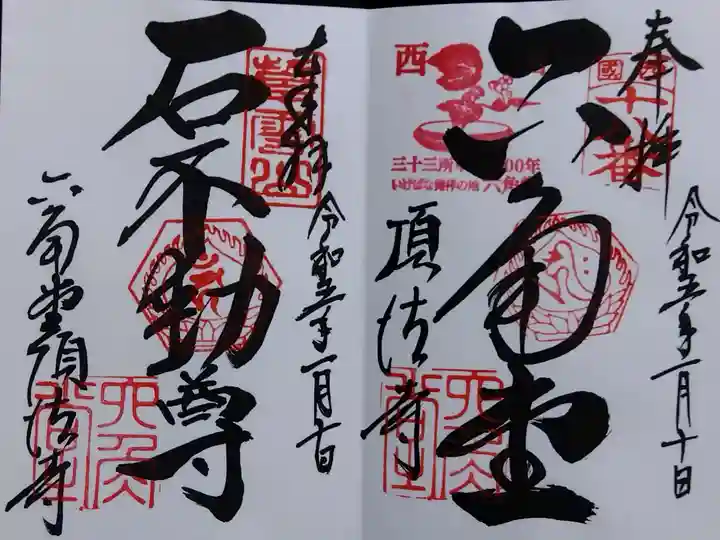 奉拝
六角堂
令和五年一月十日
頂法寺
西國十八番
西
三十三所
00年
いけばな發祥の地 六角
六角堂
奉拝
石不動尊
令和五年一月十日
六角堂頂法寺
紫雲山
六角堂